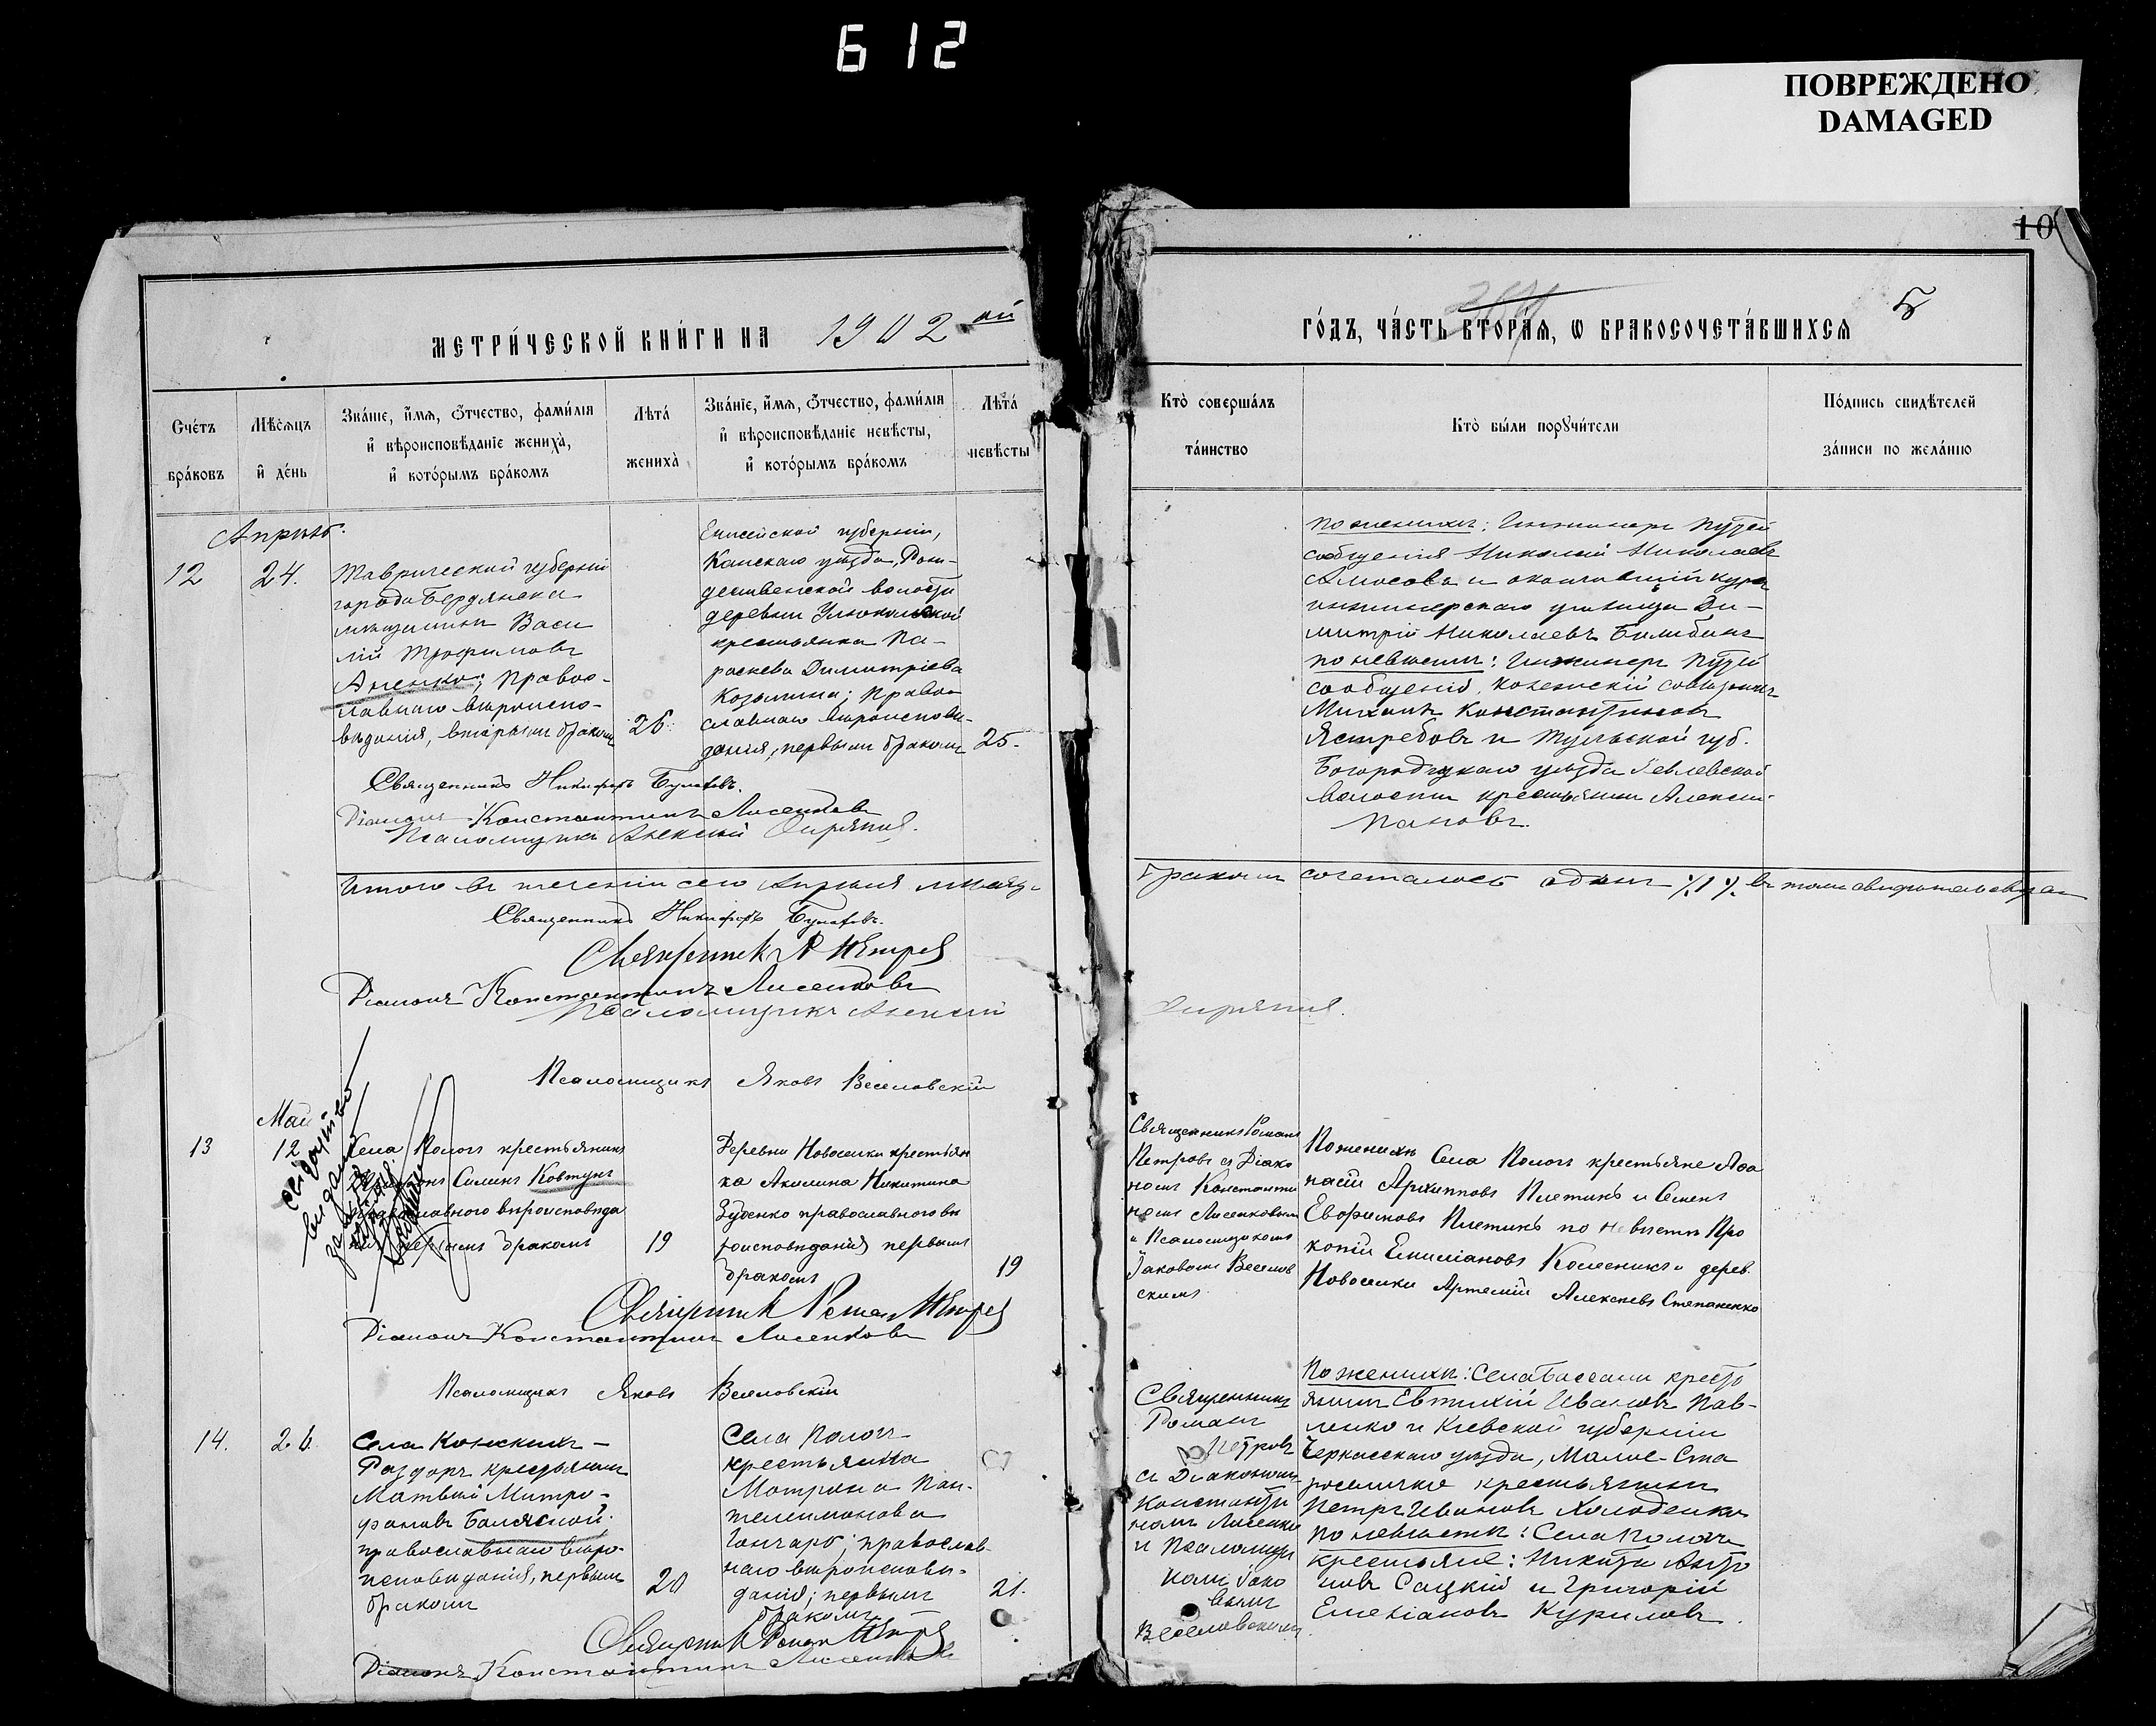 612
ПОВРЕЖДЕНО
DAMAGED
10
5
МЕТРИ́ЧЕСКОЙ КНИ́ГИ НА 1902 ой
ГО́ДЪ, ЧА́СТЬ ВТОРАѦ, Ѡ БРАКОСОЧЕТА́ВШИХСѦ
Сче́тъ
бра́ковъ
Мѣ́сѧцъ
и҆ де́нь
Зва́нїе, и҆́мѧ, ѻ҆́тчество, фами́лїѧ
и҆ вѣроисповѣ́данїе жениха̀,
и҆ кото́рымъ бра́комъ
Лѣта̀
жениха̀
Зва́нїе, и҆́мѧ, ѻ҆́тчество, фами́лїѧ
и҆ вѣроисповѣ́данїе невѣ́сты,
и҆ кото́рымъ бра́комъ
Лѣта̀
невѣ́сты
Кто̀ соверша́лъ
та́инство
Кто̀ бы́ли порꙋчи́тели
По́дпись свидѣ́телей
за́писи по жела́нїю
Апрѣль.
12
24.
Таврической губерніи
города Бердянска
мѣщанинъ Васи
лій Трофимовъ
православнаго вѣроиспо-
вѣданія, вторымъ бракомъ
26.
Енисейской губерніи,
Канскаго уѣзда, Рож-
дественской волости
деревни
крестьянка Па-
раскева Димитріева
Козьмина; право
славнаго вѣроисповѣ-
данія, первымъ бракомъ
25.
По женихѣ: Инженеръ путей
сообщенія Николай Николаевъ
Амосовъ и окончившій курсъ
инженернаго училища Ди-
митрій Николаевъ Билибинъ
по невѣстѣ: Инженеръ путей
сообщенія,
Михаилъ Константиновъ
Ястребовъ и Тульской губ.
Богородицкаго уѣзда
волости крестьянинъ Алексѣй
Пановъ.
Священникъ Никифоръ Булатовъ.
Діаконъ Константинъ Лисенковъ
Псаломщикъ Алексій
Итого въ теченіи сего Апрѣля мѣсяца
бракомъ сочеталось одинъ ٪1٪ въ томъ свидѣтельствуемъ
Священникъ Никифоръ Булатовъ.
Священникъ Р Петровъ
Діаконъ Константинъ Лисенковъ
Псаломщикъ Алексій
Псаломщикъ Яковъ Веселовскій
Май
13
12
Села Пологъ крестьянинъ
Силинъ Ковтунъ
православного вѣроисповѣда
нія первымъ бракомъ
19
Деревни Новоселки крестьян
ка Акилина Никитина
Зубенко православного вѣ
роисповѣданія первымъ
бракомъ
19
Священникъ Романъ
Петровъ съ Діако
номъ Константи
номъ Лисенковымъ
и Псаломщикомъ
Іаковомъ Веселов
скимъ
По женихѣ Села Пологъ крестьяне Афа
насій Архипповъ Плетинь и Семенъ
Евфимовъ Плетинь по невѣстѣ Про
копій Емиліановъ Колесникъ и дерев.
Новоселки Артемій Алексѣевъ Степаненко
Священникъ Роман Петровъ
Діаконъ Константинъ Лисенковъ
Псаломщикъ Яковъ Веселовскій
14.
26.
Села Конскихъ-
Раздоръ крестьянинъ
Матвѣй Митро-
фановъ Балясной
православнаго вѣро-
исповѣданія, первымъ
бракомъ
20
Села Пологъ
крестьянка
Матрона Пан-
телеимонова
Гончаръ; православ-
наго вѣроисповѣ-
данія; первымъ
бракомъ
21.
Священникъ
Романъ
Петровъ
съ Діакономъ
Константи
номъ
и Псаломщи
комъ Іако
вомъ
Веселовскимъ
По женихѣ: Села Басани кресть
янинъ Евтихій Ивановъ Пав-
ленко и Кіевской губерніи
Черкасскаго уѣзда, Малое-Ста
роселичке крестьянинъ
Петръ Ивановъ Холоденко
по невѣстѣ: Села Пологъ
крестьяне: Никита Анто
новъ Сацкій и Григорій
Емеліановъ Куриловъ.
Священникъ Роман Петровъ
Діаконъ Константинъ Лисенковъ